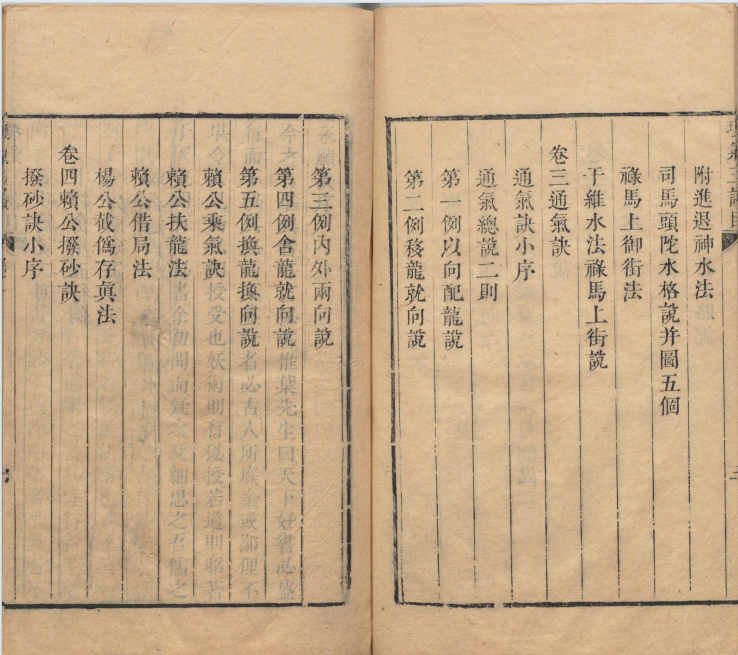 附進退神水法
司馬頭陀水格說并圖五個
祿馬上御街法
干維水法祿馬上街說
卷三通氣訣
通氣訣小序
通氣總說二則
第一例以向配龍說
第二例移龍就向說
第三例內外兩向說
第四例舍龍就向說
第五例換龍換向說
賴公乘氣訣
賴公扶龍法
賴公借局法
楊公截僞存眞法
卷四賴公撥砂訣
撥砂訣小序